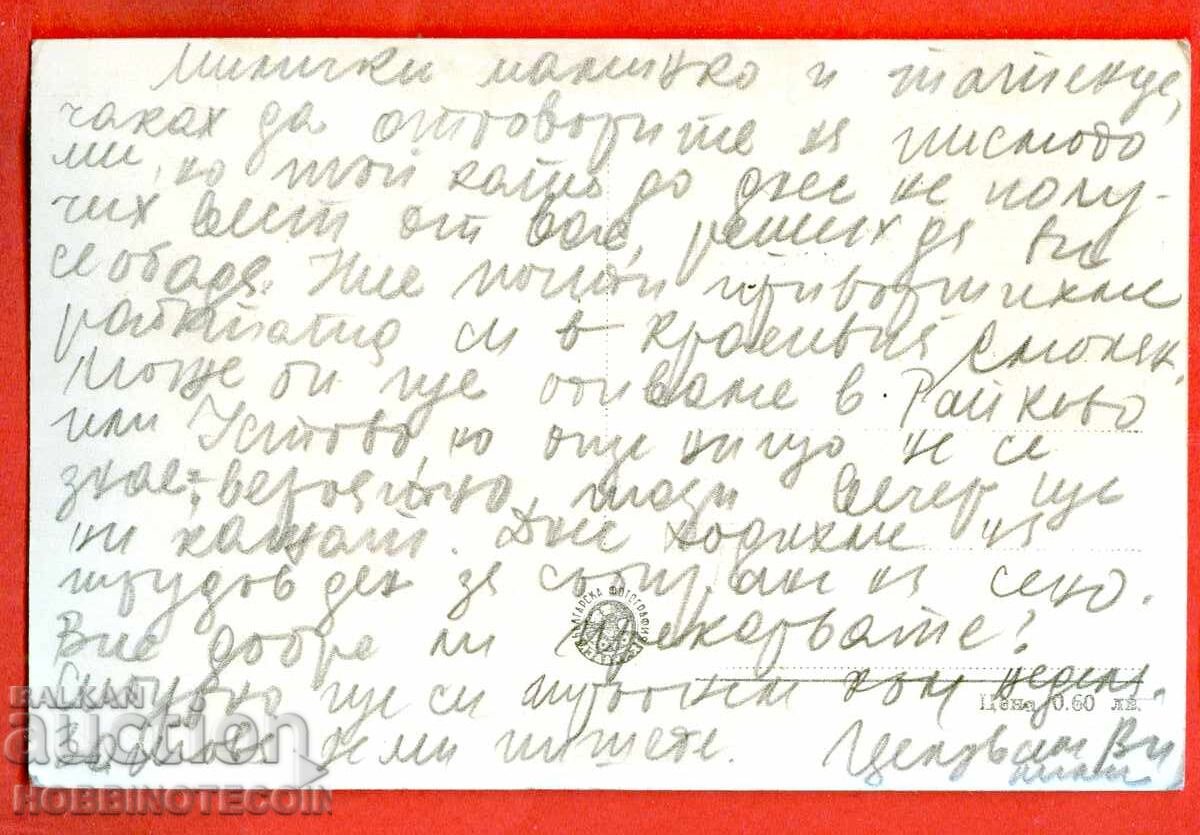 Милички мамичко и татенце,
чаках да отговорите на писмото
ми, но тъй като до днес не полу-
чих вест от вас, реших да ви
се обадя. Ние почти привършихме
работата си в красивия Смолян.
Може би ще отиваме в Райково
или Устово, но още нищо не се
знае; вероятно тази вечер ще
ни кажат. Днес ходихме на
трудов ден за събиране на сено.
Вие добре ли прекарвате?
Сигурно ще си тръгнем към недел.
де ми пишете. Целувам Ви
БЪЛГАРСКА ФОТОГРАФИЯ
Цена 0.60 лв.
BALKAN
auction
HOBBINOTECOIN